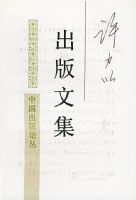 许力以
出版文集
中国出版论丛